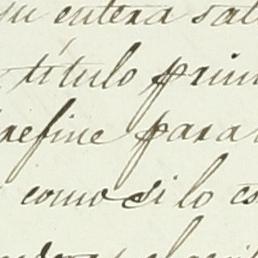 su entera sat
título prim
refine para
como si lo co